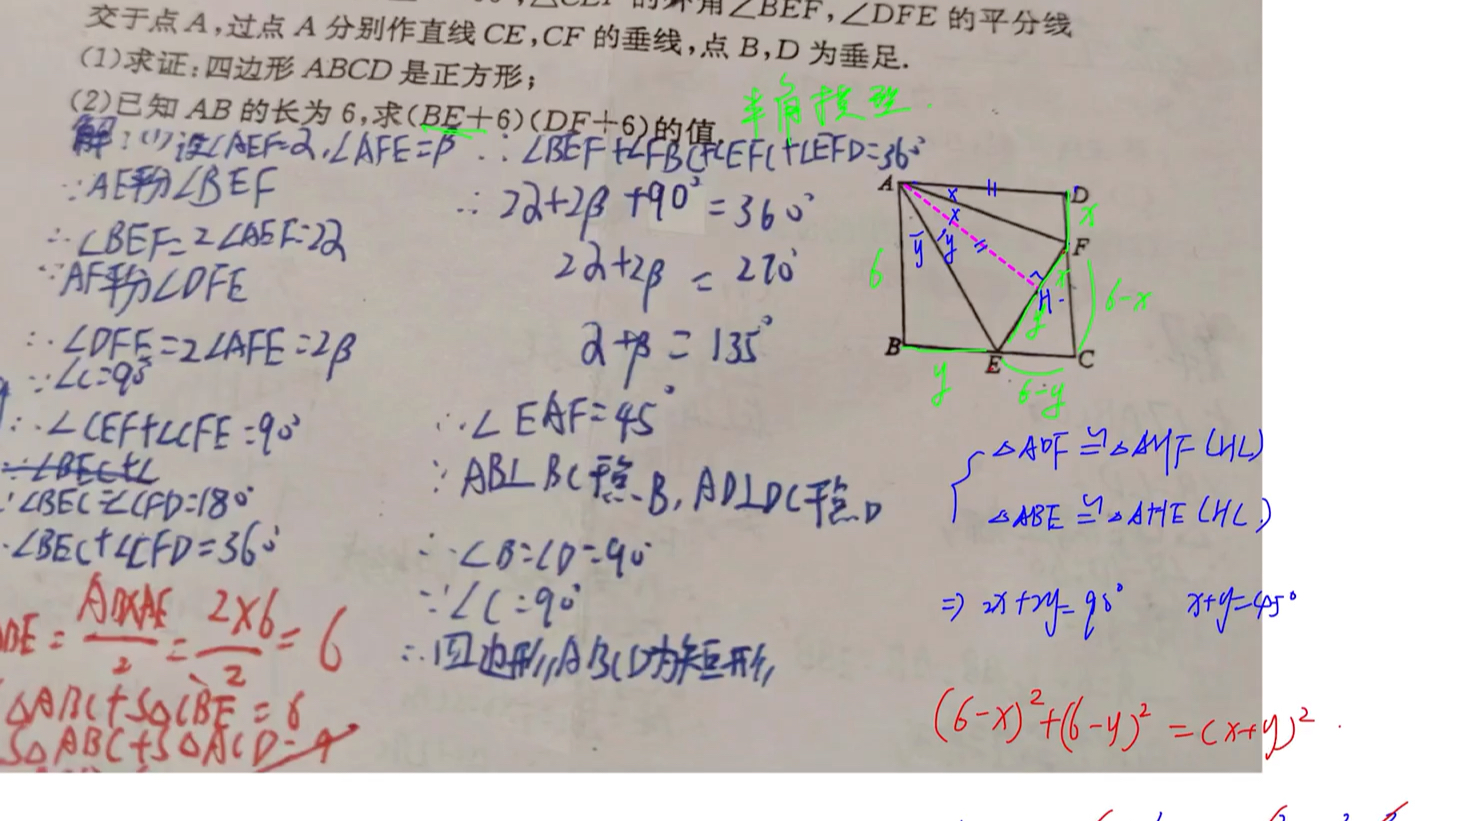 的外角∠BEF,∠DFE 的平分线
交于点 A,过点 A 分别作直线 CE,CF 的垂线,点 B,D 为垂足.
(1)求证:四边形 ABCD 是正方形;
(2)已知 AB 的长为 6,求(BE+6)(DF+6)的值.
半角模型.
解:(1)设∠AEF=α,∠AFE=β
∵AE平分∠BEF
∴∠BEF=2∠AEF=2α
∵AF平分∠DFE
∴∠DFE=2∠AFE=2β
∵∠C=90°
∴∠CEF+∠CFE=90°
∠BEC=∠CFD=180°
∠BEC+∠CFD=360°
∴∠BEF+∠FBC+∠EFC+∠EFD=360°
∴2α+2β+90°=360°
2α+2β=270°
α+β=135°
∴∠EAF=45°
∵AB⊥BC于点B,AD⊥DC于点D
∴∠B=∠D=90°
∵∠C=90°
∴四边形ABCD为矩形
=2×6/2=6
△ABC+S△CBE=6
S△ABC+S△ACD=
A
D
x
x
x
F
y
y
6
x
H
6-x
y
B
E
C
y
6-y
△ADF≌△AHF(HL)
△ABE≌△AHE(HL)
⇒2x+2y=90° x+y=45°
(6-x)²+(6-y)²=(x+y)².